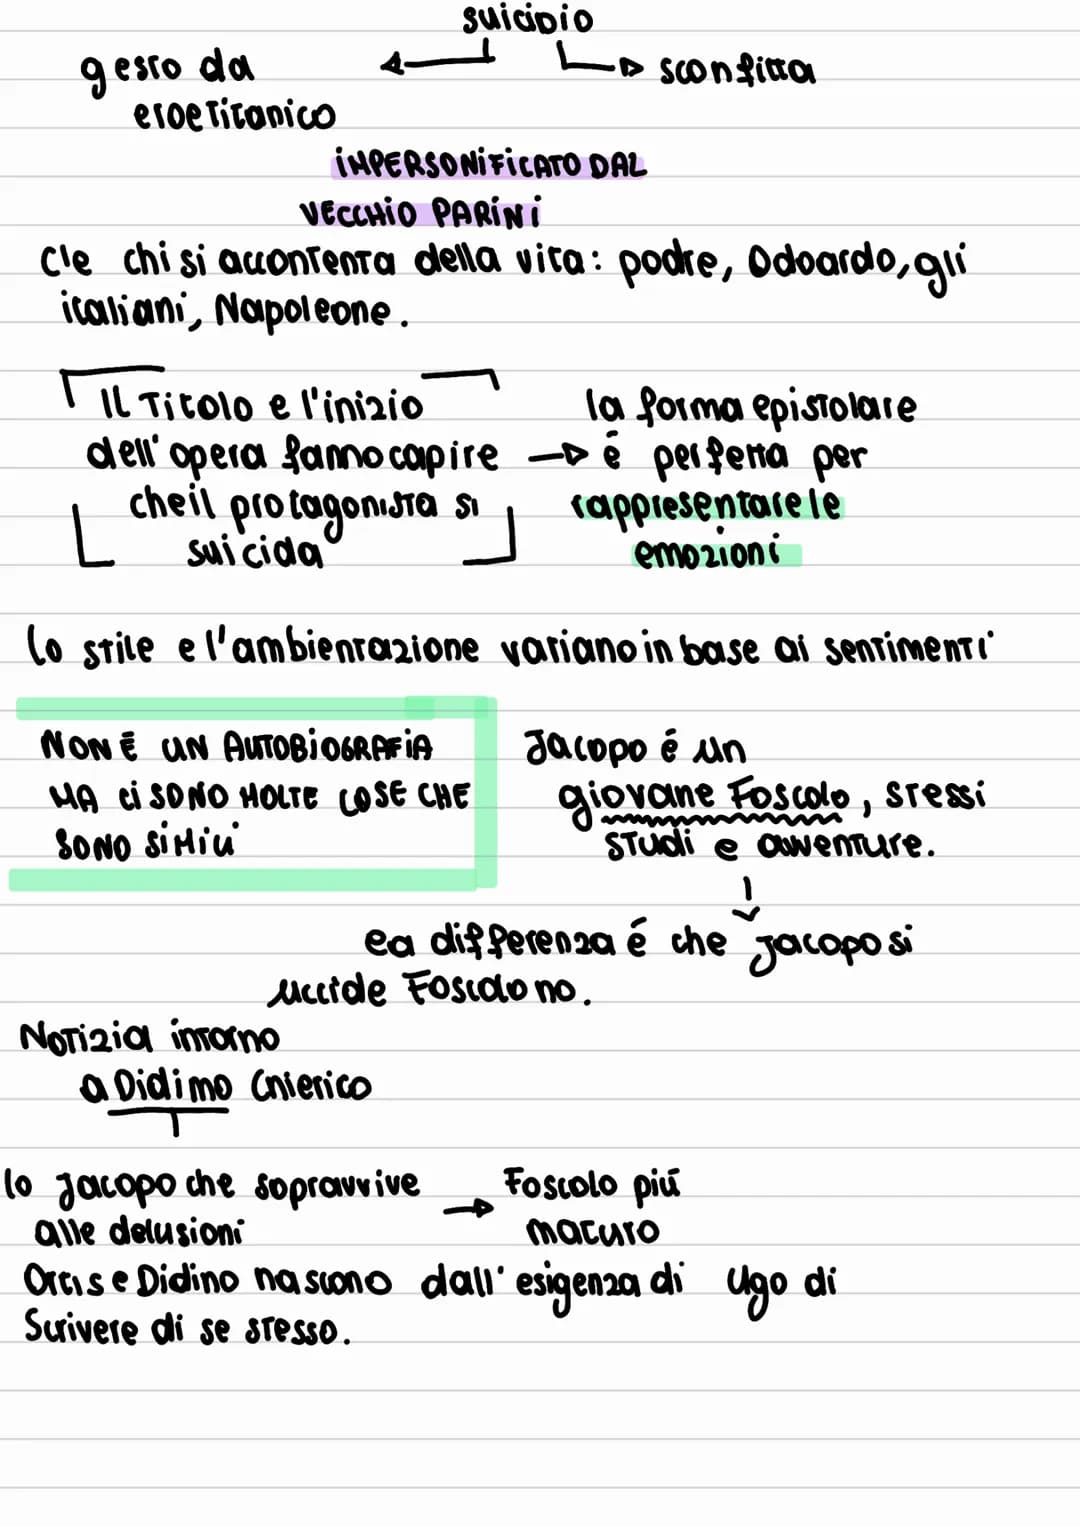 suicidio
gesto da
eroe titanico
sconfitta
IMPERSONIFICATO DAL
VECCHIO PARINI
C'e chi si accontenta della vita: padre, Odoardo, gli
italiani, Napoleone.
Il Titolo e l'inizio
dell'opera fanno capire
che il protagonista si
suicida
la forma epistolare
é perfetta per
rappresentare le
emozioni
lo stile e l'ambientazione variano in base ai sentimenti
NON É UN AUTOBIOGRAFIA
MA CI SONO MOLTE COSE CHE
SONO SIMILI
Jacopo é un
giovane Foscolo, stessi
studi e avventure.
ea differenza é che Jacopo si
uccide Foscolo no.
Notizia intorno
a Didimo Chierico
lo Jacopo che sopravvive
alle delusioni
Foscolo piú
maturo
Ortis e Didino nascono dall'esigenza di Ugo di
Scrivere di se stesso.